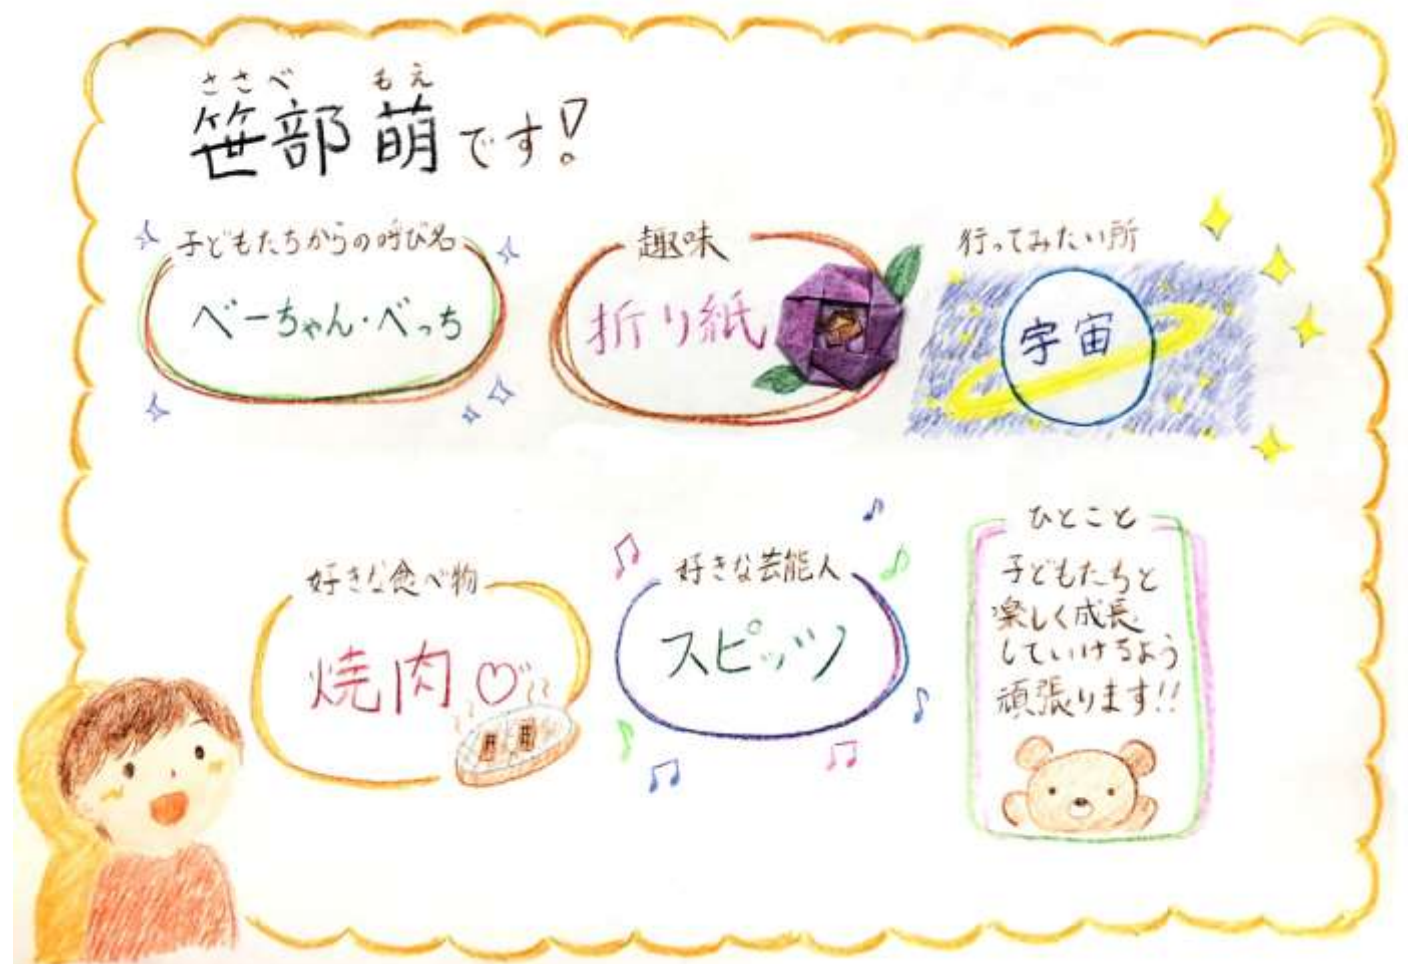 ささべ もえ
笹部 萌です!
子どもたちからの呼び名
べーちゃん・べっち
趣味
折り紙
行ってみたい所
宇宙
好きな食べ物
焼肉♡
好きな芸能人
スピッツ
ひとこと
子どもたちと
楽しく成長
していけるよう
頑張ります!!